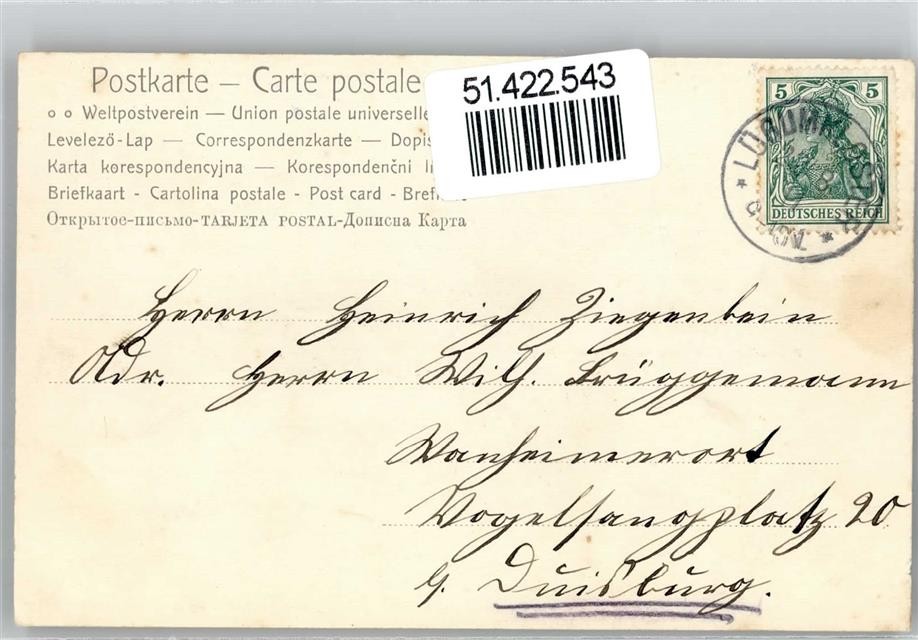 Postkarte – Carte postale
Weltpostverein — Union postale universelle
Levelező-Lap — Correspondenzkarte — Dopis
Karta korespondencyjna — Korespondenční
Briefkaart - Cartolina postale - Post card -
Открытое-письмо-TARJETA POSTAL-Дописна Карта
51.422.543
5 5
DEUTSCHES REICH
Herrn Heinrich Ziegenbein
Adr. Herrn Wilh. Brüggemann
Wanheimerort
Vogelsangplatz 20
b. Duisburg.